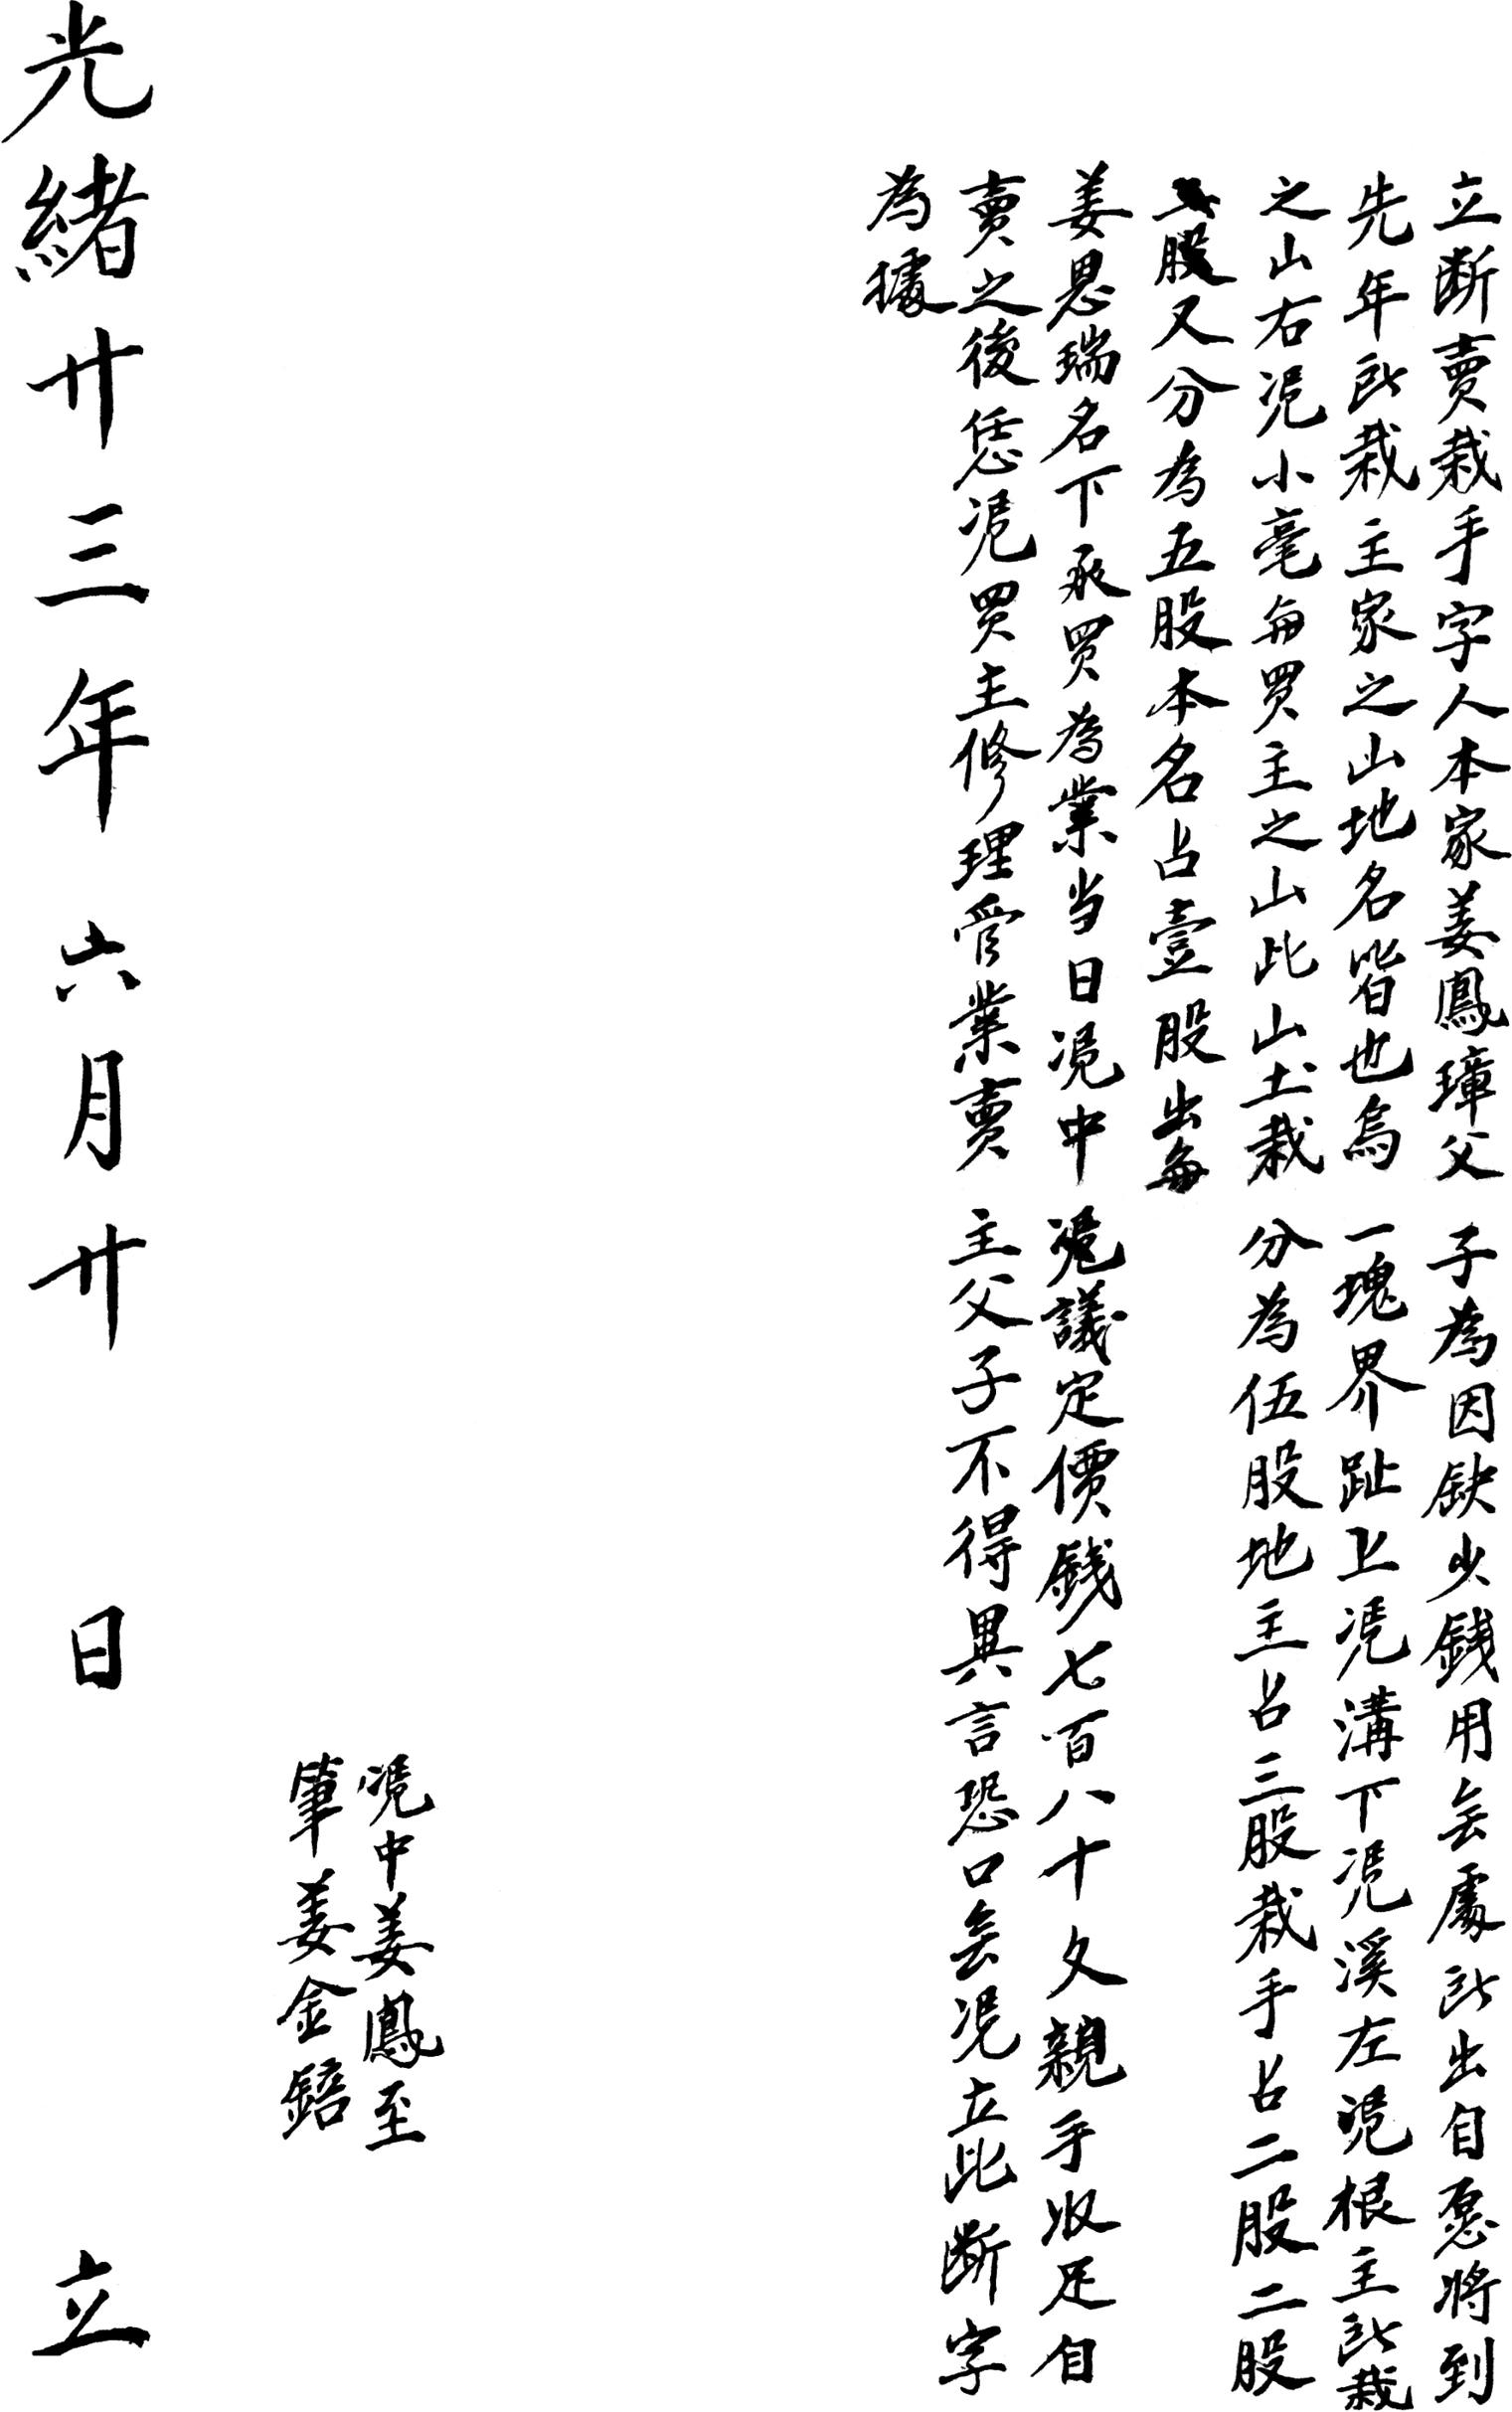 立断賣栽手字人本家姜鳳璋父子為因缺少錢用無處所出自愿將到
先年所栽主家之山地名皆也烏一塊界趾上凴溝下凴溪左凴根主所栽
之山右凴小毫與買主之山此山土栽分為伍股地主占三股栽手占二股二股
股又分為五股本名占壹股出與
姜恩瑞名下承買為業当日凴中凴議定價錢七百八十文親手收足自
賣之後恁凴買主修理管業賣主父子不得異言恐口無凴立此断字
為據
凴中姜鳳至
筆姜金
光緒廿三年六月廿日立